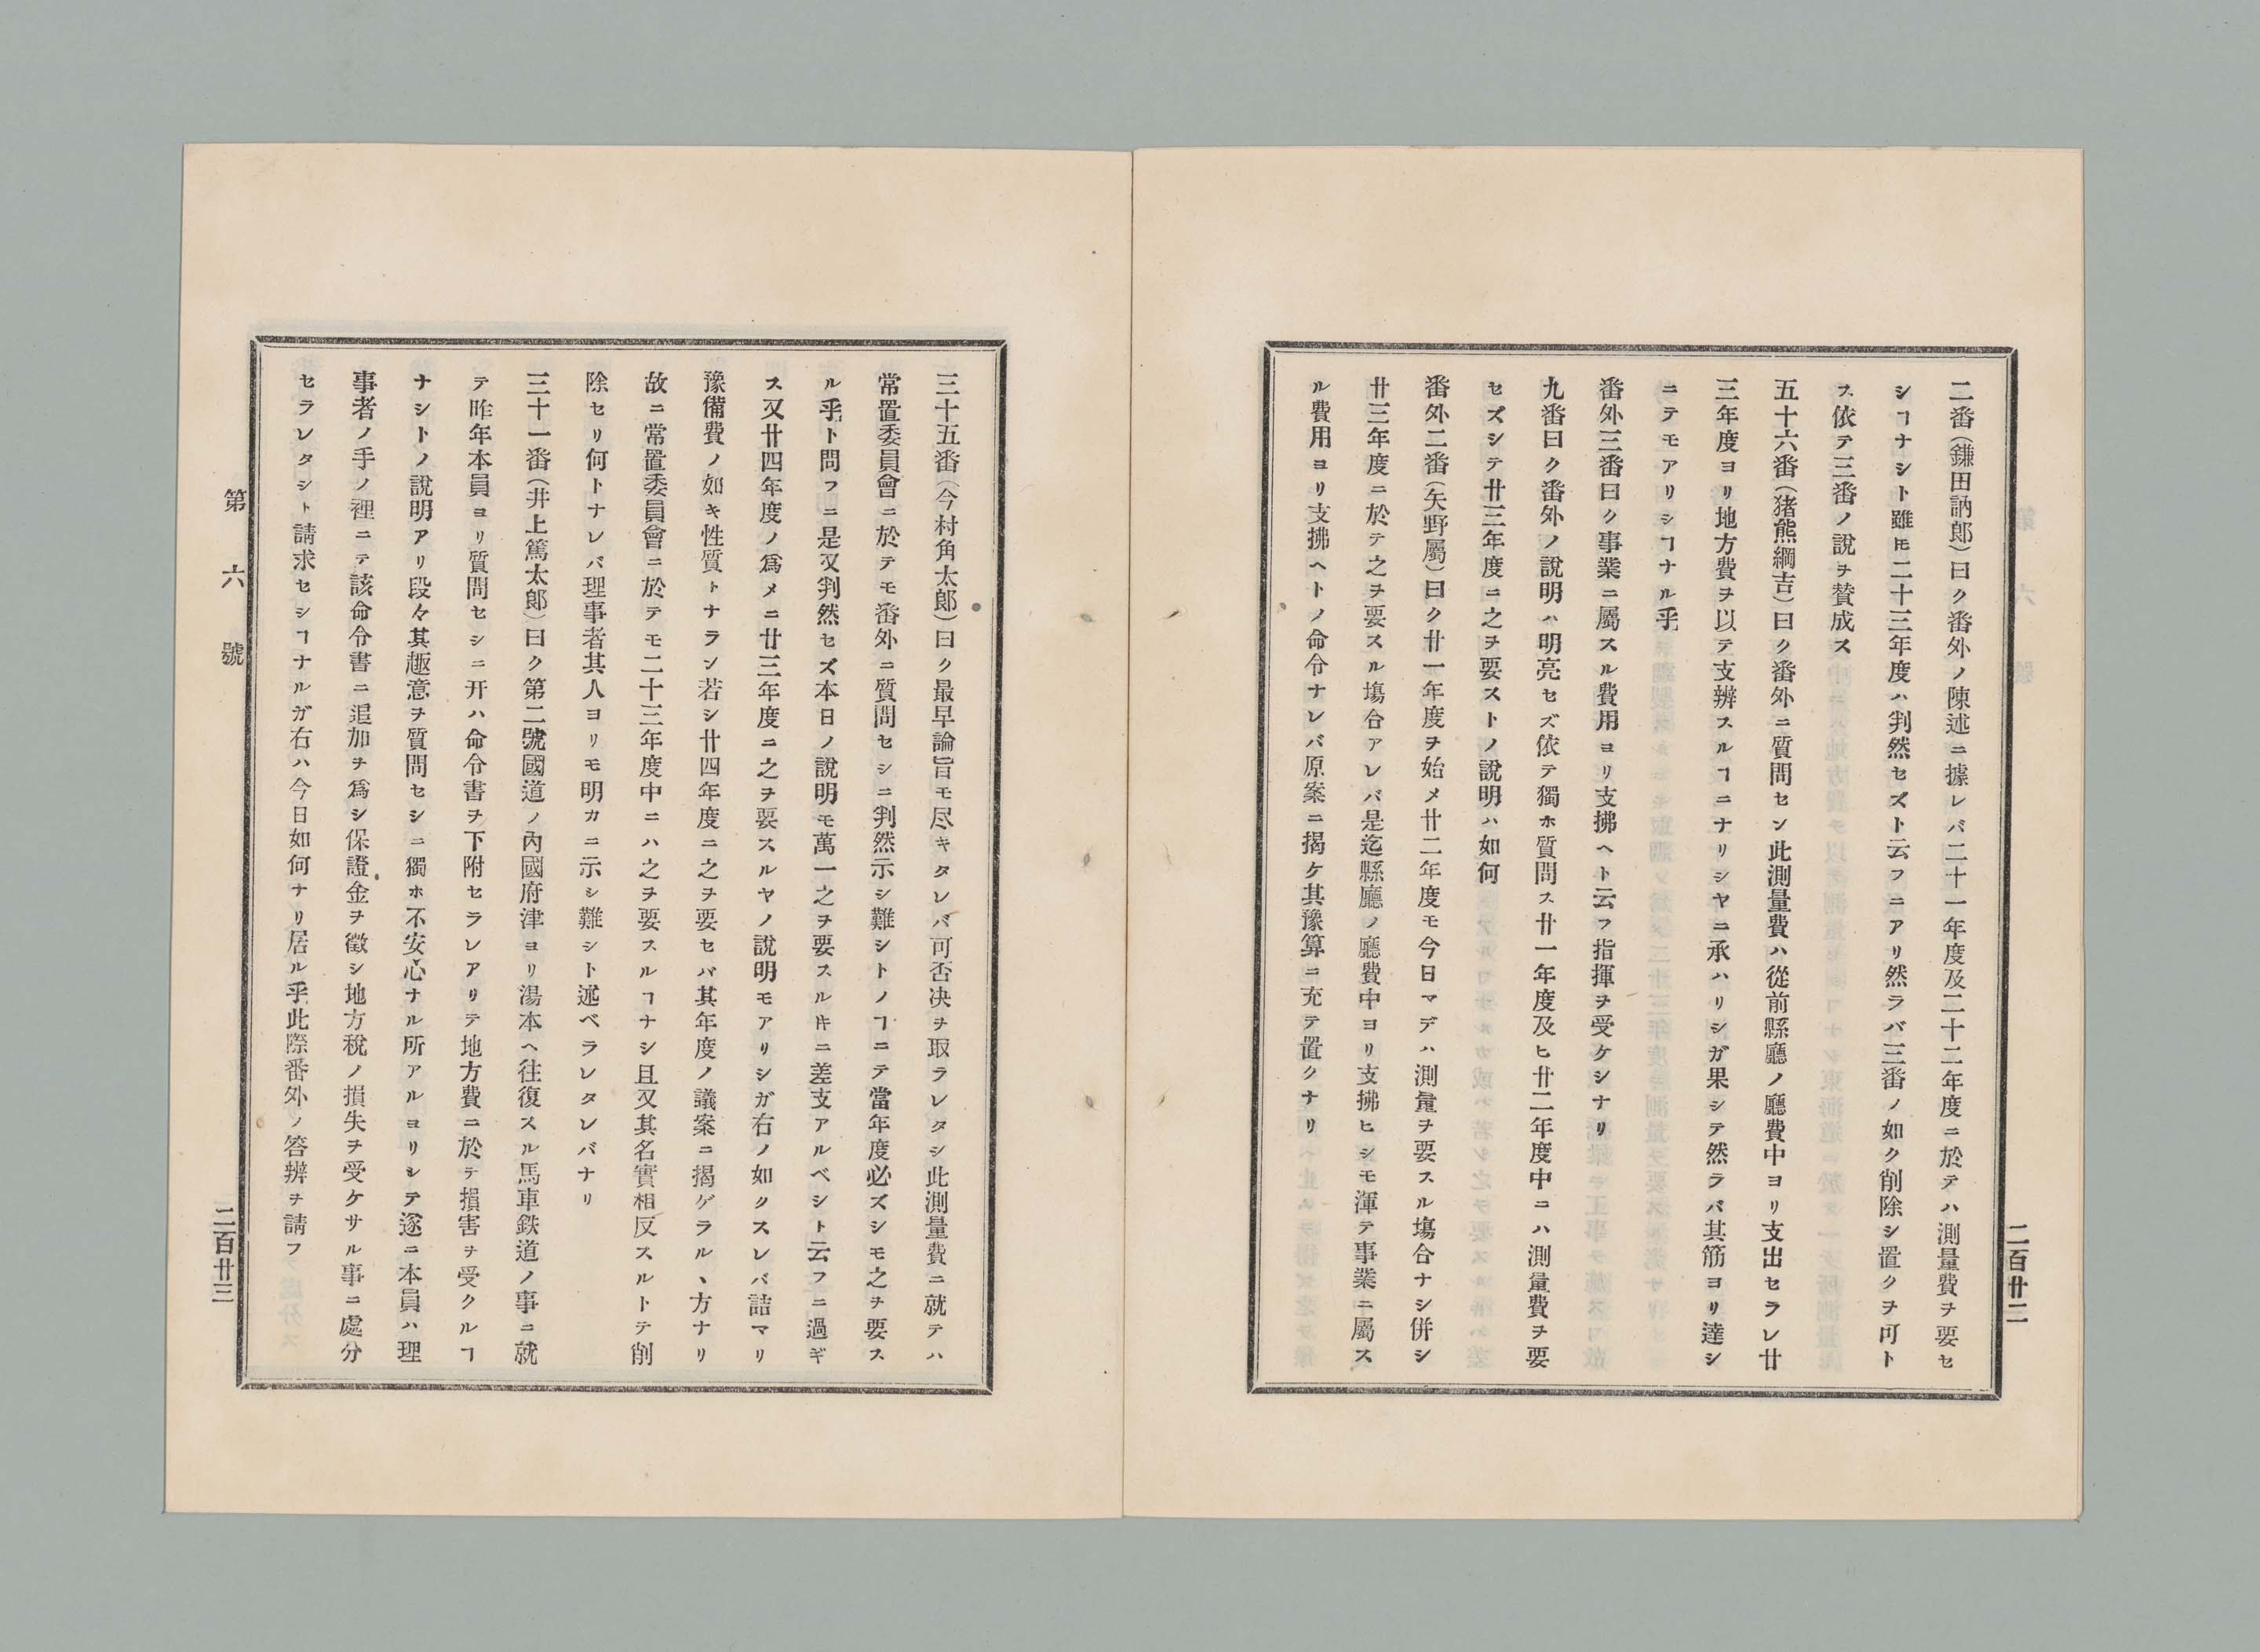 二番(鎌田訥郎)曰ク番外ノ陳述ニ據レバ二十一年度及二十二年度ニ於テハ測量費ヲ要セ
シヿナシト雖𪜈二十三年度ハ判然セズト云フニアリ然ラバ三番ノ如ク削除シ置クヲ可ト
ス依テ三番ノ說ヲ賛成ス
五十六番(猪熊綱吉)曰ク番外ニ質問セン此測量費ハ從前縣廳ノ廳費中ヨリ支出セラレ廿
三年度ヨリ地方費ヲ以テ支辨スルヿニナリシヤニ承ハリシガ果シテ然ラバ其筋ヨリ達シ
ニテモアリシヿナル乎
番外三番曰ク事業ニ屬スル費用ヨリ支拂ヘト云フ指揮ヲ受ケシナリ
九番曰ク番外ノ說明ハ明亮セズ依テ獨ホ質問ス廿一年度及ヒ廿二年度中ニハ測量費ヲ要
セズシテ廿三年度ニ之ヲ要ストノ說明ハ如何
番外二番(矢野屬)曰ク廿一年度ヲ始メ廿二年度モ今日マデハ測量ヲ要スル塲合ナシ併シ
廿三年度ニ於テ之ヲ要スル塲合アレバ是迄縣廳ノ廳費中ヨリ支拂ヒシモ渾テ事業ニ屬ス
ル費用ヨリ支拂ヘトノ命令ナレバ原案ニ揭ケ其豫算ニ充テ置クナリ
二百廿二
三十五番(今村角太郎)曰ク最早論旨モ尽キタレバ可否決ヲ取ラレタシ此測量費ニ就テハ
常置委員會ニ於テモ番外ニ質問セシニ判然示シ難シトノヿニテ當年度必ズシモ之ヲ要ス
ル乎ト問フニ是又判然セズ本日ノ說明モ萬一之ヲ要スル𪜈ニ差支アルベシト云フニ過ギ
ス又廿四年度ノ爲メニ廿三年度ニ之ヲ要スルヤノ說明モアリシガ右ノ如クスレバ詰マリ
豫備費ノ如キ性質トナラン若シ廿四年度ニ之ヲ要セバ其年度ノ議案ニ揭ゲラルヽ方ナリ
故ニ常置委員會ニ於テモ二十三年度中ニハ之ヲ要スルヿナシ且又其名實相反スルトテ削
除セリ何トナレバ理事者其人ヨリモ明カニ示シ難シト述ベラレタレバナリ
三十一番(井上篤太郎)曰ク第二號國道ノ內國府津ヨリ湯本ヘ往復スル馬車鉄道ノ事ニ就
テ昨年本員ヨリ質問セシニ幵ハ命令書ヲ下附セラレアリテ地方費ニ於テ損害ヲ受クルヿ
ナシトノ說明アリ段々其趣意ヲ質問セシニ獨ホ不安心ナル所アルヨリシテ遂ニ本員ハ理
事者ノ手ノ裡ニテ該命令書ニ追加ヲ爲シ保證金ヲ徵シ地方稅ノ損失ヲ受ケサル事ニ處分
セラレタシト請求セシヿナルガ右ハ今日如何ナリ居ル乎此際番外ノ答辨ヲ請フ
第六號
二百廿三